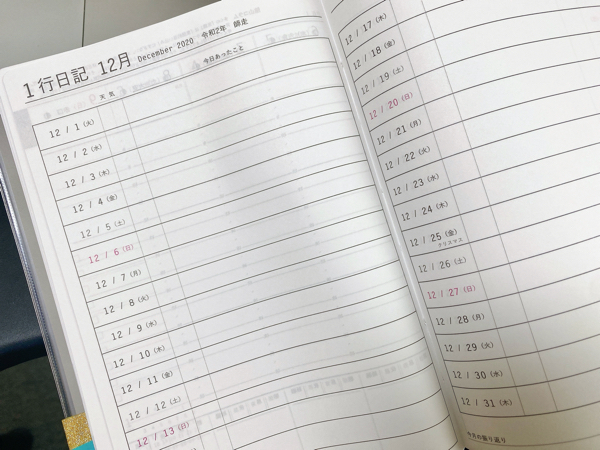 1行日記 12月 December 2020 令和2年 師走
天気 今日あったこと
12 / 1 (火)
12 / 2 (水)
12 / 3 (木)
12 / 4 (金)
12 / 5 (土)
12 / 6 (日)
12 / 7 (月)
12 / 8 (火)
12 / 9 (水)
12 / 10 (木)
12 / 11 (金)
12 / 12 (土)
12 / 13 (日)
12 / 17 (木)
12 / 18 (金)
12 / 19 (土)
12 / 20 (日)
12 / 21 (月)
12 / 22 (火)
12 / 23 (水)
12 / 24 (木)
12 / 25 (金)
クリスマス
12 / 26 (土)
12 / 27 (日)
12 / 28 (月)
12 / 29 (火)
12 / 30 (水)
12 / 31 (木)
今月の振り返り